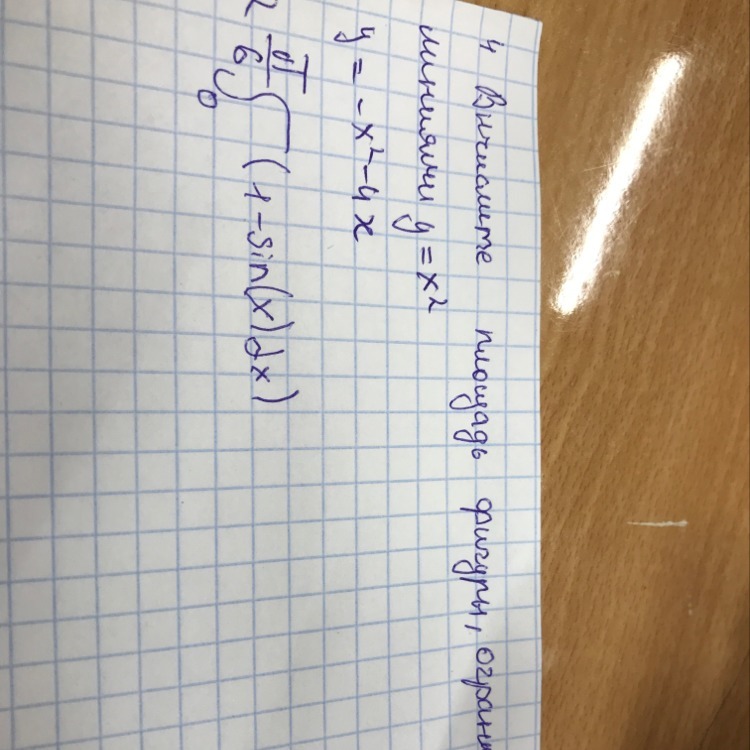 4 Вычислите площадь фигуры, огран
линиями y = x²
y = -x² - 4x
π/6 ∫ 0 (1 - sin(x)dx)